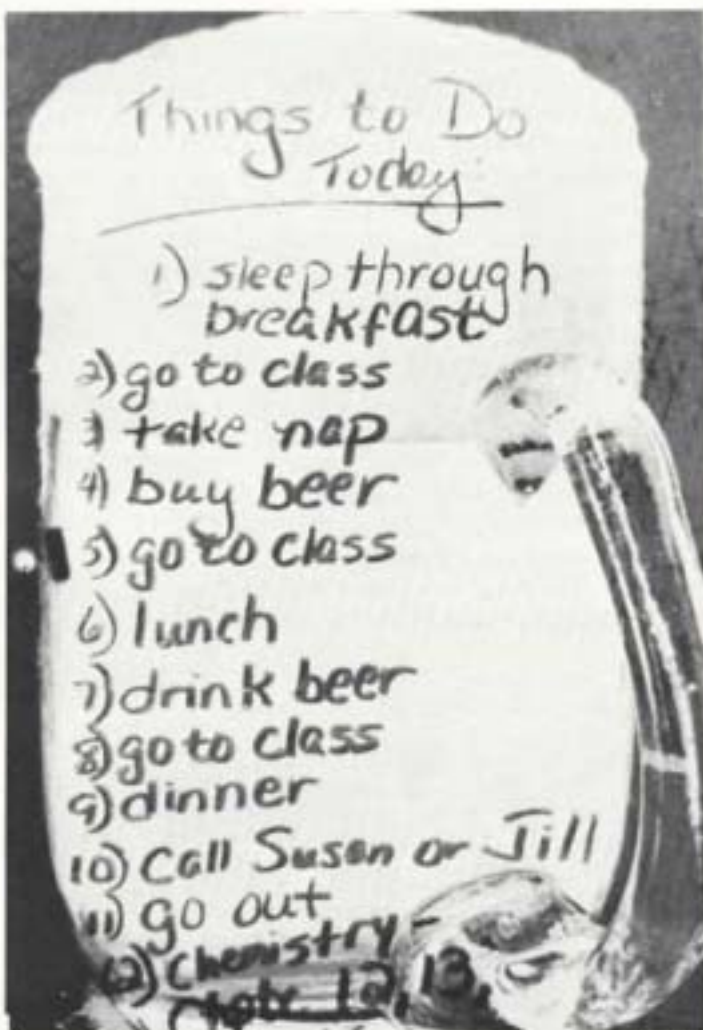 Things to Do
Today:
1) sleep through
breakfast
2) go to class
3) take nap
4) buy beer
5) go to class
6) lunch
7) drink beer
8) go to class
9) dinner
10) Call Susan or Jill
11) go out
12) Chemistry -
12, 13,